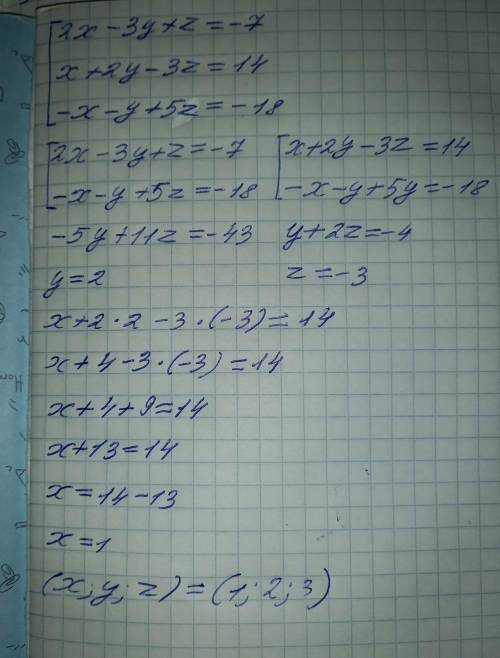 2x-3y+z=-7
x+2y-3z=14
-x-y+5z=-18
2x-3y+z=-7 x+2y-3z=14
-x-y+5z=-18 -x-y+5y=-18
-5y+11z=-43 y+2z=-4
y=2 z=-3
x+2·2-3·(-3)=14
x+4-3·(-3)=14
x+4+9=14
x+13=14
x=14-13
x=1
(x;y;z)=(1;2;3)